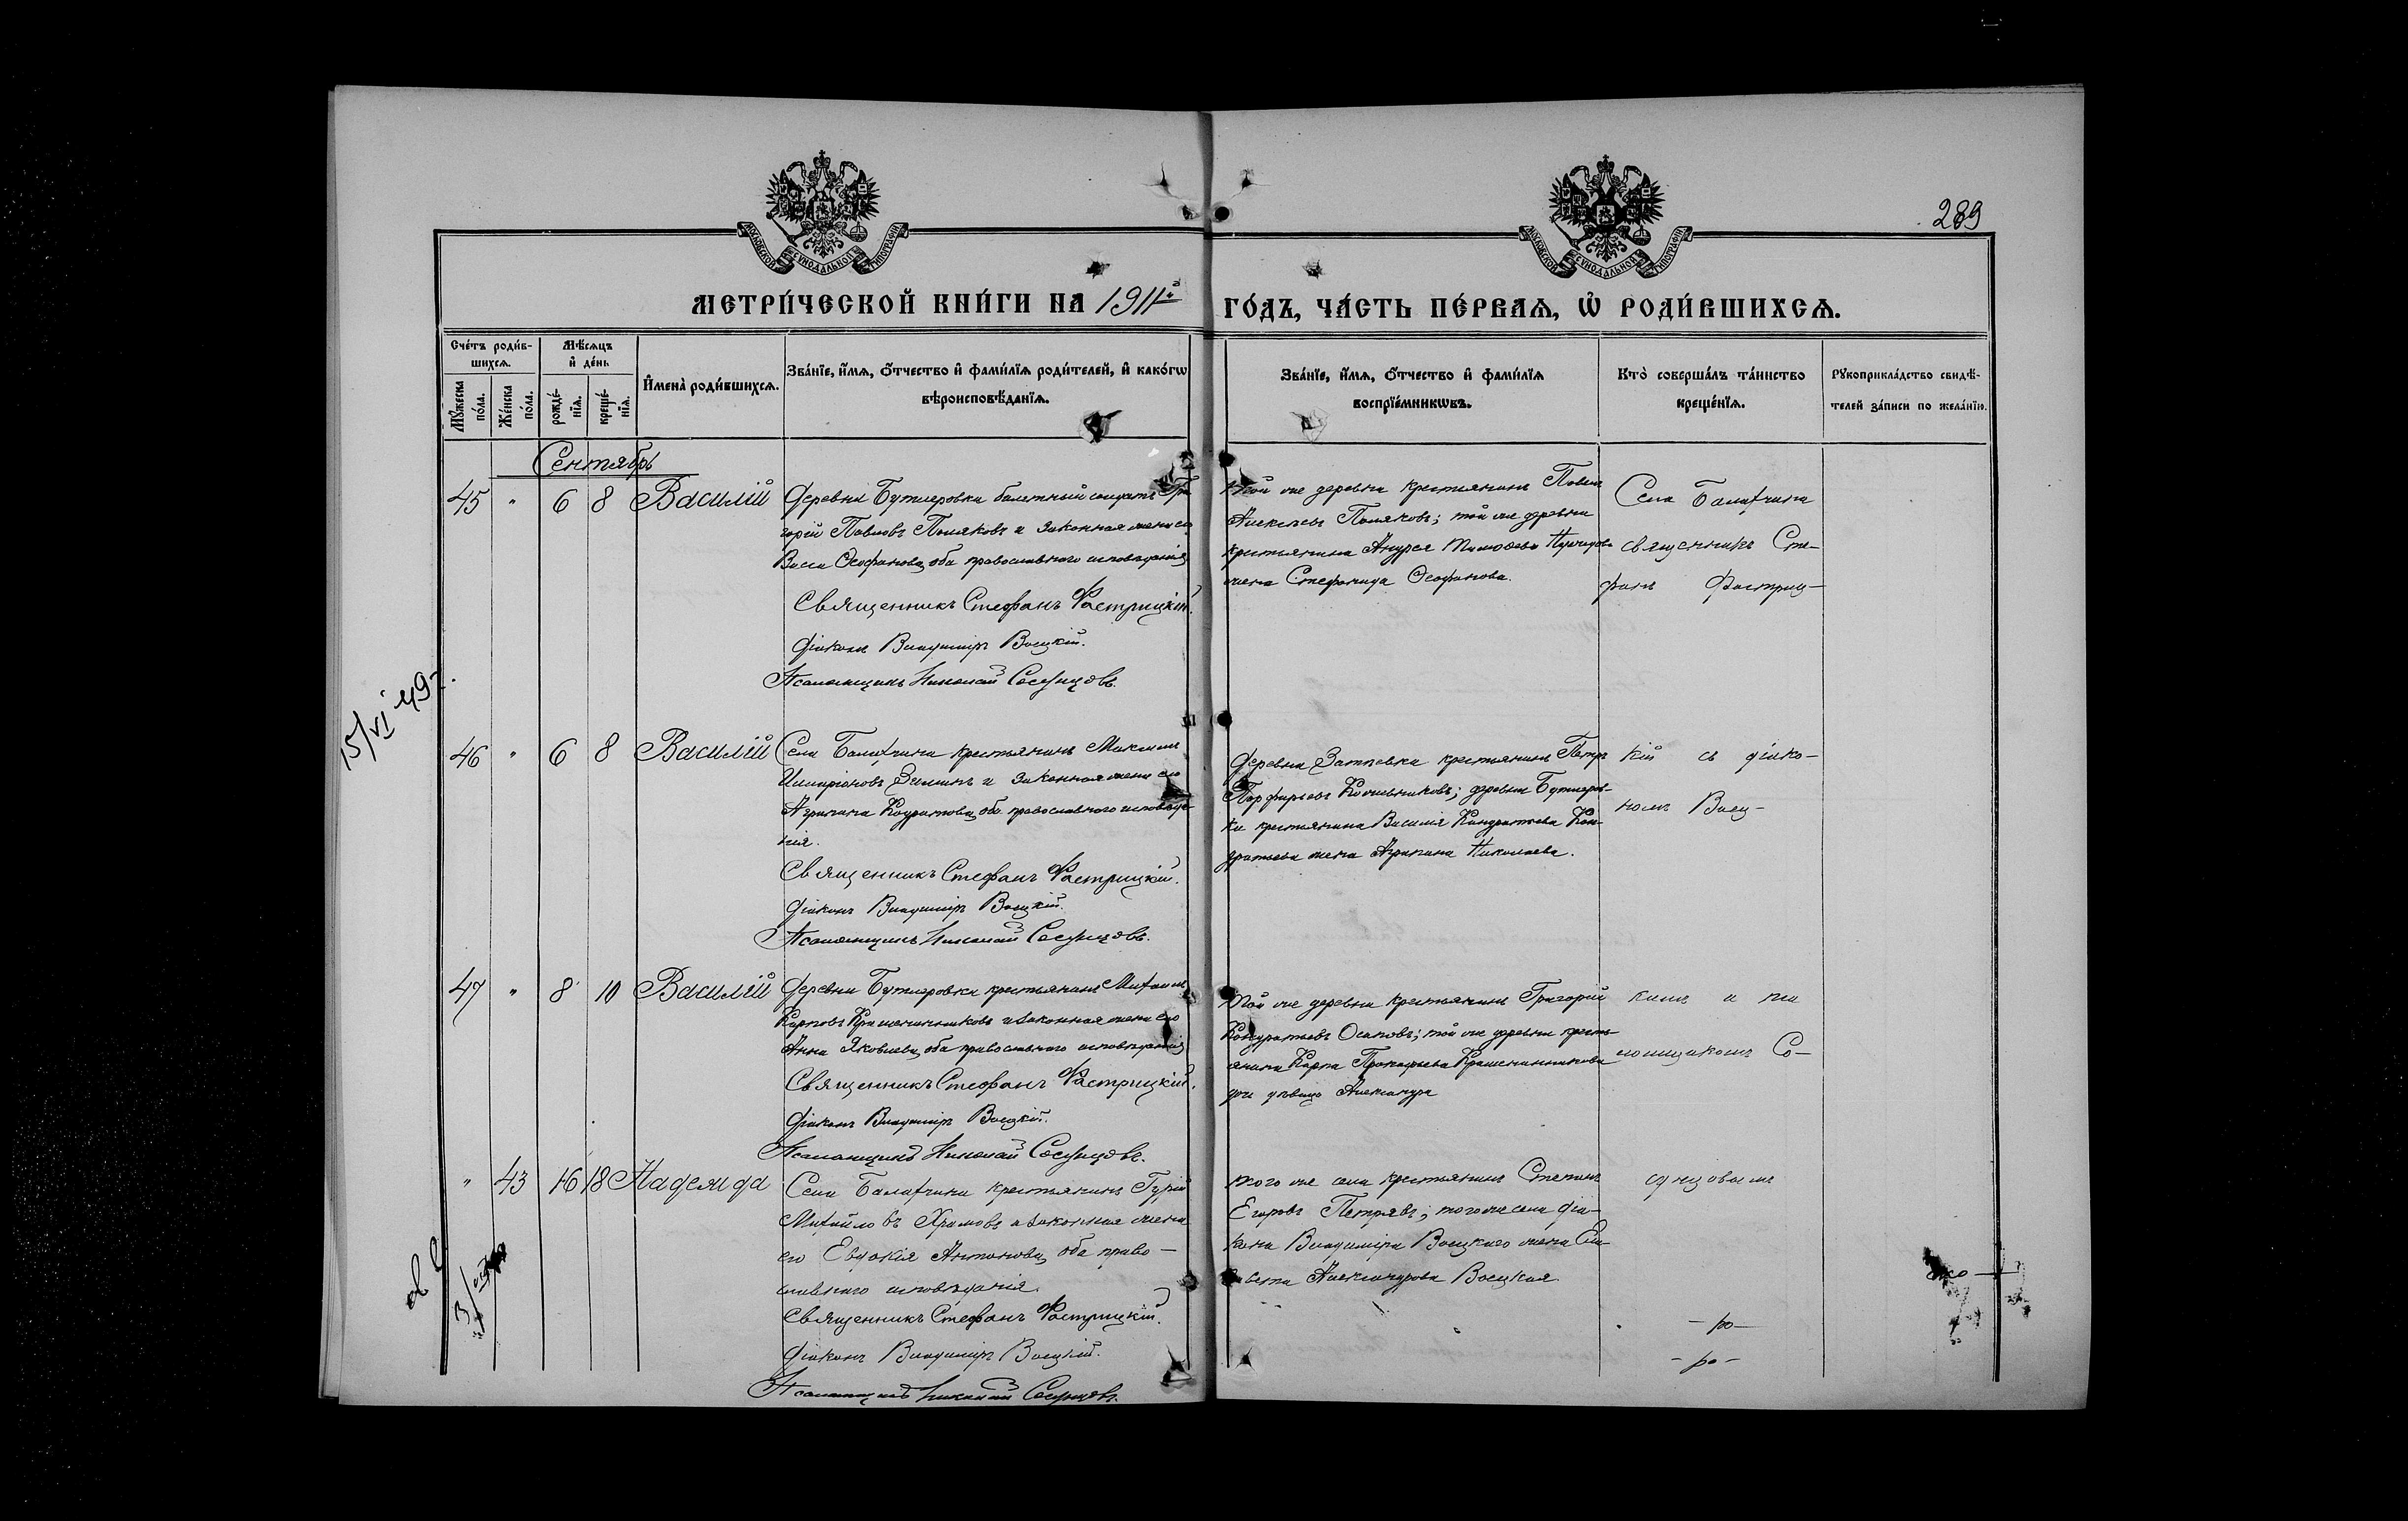 289
МОСКОВСКОЙ СУНОДАЛЬНОЙ ТИПОГРАФІИ
МОСКОВСКОЙ СУНОДАЛЬНОЙ ТИПОГРАФІИ
МЕТРИ́ЧЕСКОЙ КНИ́ГИ НА 1911й ГО́ДЪ, ЧА́СТЬ ПЕ́РВАѦ, Ѡ҆ РОДИ́ВШИХСѦ.
Сче́тъ роди́в-
шихсѧ.
Мꙋ́жеска по́ла.
Же́нска по́ла.
Мѣ́сѧцъ
и҆ де́нь
рожде́-нїѧ.
креще́-нїѧ.
И҆мена̀ роди́вшихсѧ.
Зва́нїе, и҆́мѧ, ѻ҆́тчество и҆ фами́лїѧ роди́телей, и҆ како́гѡ
вѣроисповѣ́данїѧ.
Зва́нїе, и҆́мѧ, ѻ҆́тчество и҆ фами́лїѧ
воспрїе́мникѡвъ.
Кто̀ соверша́лъ та́инство
креще́нїѧ.
Рꙋкоприкла́дство свидѣ́-
телей за́писи по жела́нїю.
Сентябрь
45 " 6 8 Василій
Деревни Бутлеровки билетный солдатъ Гри
горій Павловъ Поляковъ и законная жена его
Васса Ѳеофанова, оба православнаго исповѣданія
Священникъ Стефанъ Фастрицкій.
Діаконъ Владиміръ Воецкій.
Псаломщикъ Николай Сосунцовъ.
Той же деревни крестьянинъ Павелъ
Алексѣевъ Поляковъ; той же деревни
крестьянина Андрея Тимоѳеева
жена Стефанида Ѳеофанова.
Села Балахчина
священникъ Сте-
фанъ Фастриц-
15/VI 49 г.
46 " 6 8 Василій
Села Балахчина крестьянинъ Максимъ
Илларіоновъ и законная жена его
Агрипина Кондратова, оба православнаго исповѣда-
нія.
Священникъ Стефанъ Фастрицкій.
Діаконъ Владиміръ Воецкій.
Псаломщикъ Николай Сосунцовъ.
Деревни крестьянинъ Петръ
Порфирьевъ Кожевниковъ; деревни Бутлеров-
ки крестьянина Василія Кондратьева Кон-
дратьева жена Агрипина Николаева.
кій съ діако-
номъ Воец-
47 " 8 10 Василій
Деревни Бутлеровки крестьянинъ Михаилъ
Карповъ Крашенинниковъ и законная жена его
Анна Яковлева, оба православнаго исповѣданія
Священникъ Стефанъ Фастрицкій.
Діаконъ Владиміръ Воецкій.
Псаломщикъ Николай Сосунцовъ.
Той же деревни крестьянинъ Григорій
Кондратьевъ Осиповъ; той же деревни кресть-
янина Карпа Прокофьева Крашенинникова
дочь дѣвица Александра
кимъ и пса
ломщикомъ Со-
" 43 16 18 Надежда
Села Балахчина крестьянинъ Гурій
Михайловъ Храмовъ и законная жена
его Евдокія Антонова, оба право-
славнаго исповѣданія.
Священникъ Стефанъ Фастрицкій.
Діаконъ Владиміръ Воецкій.
Псаломщикъ Николай Сосунцовъ.
того же села крестьянинъ Степанъ
Егоровъ Петряевъ; того же села діа-
кона Владиміра Воецкаго жена Ели-
савета Александрова Воецкая.
сунцовымъ